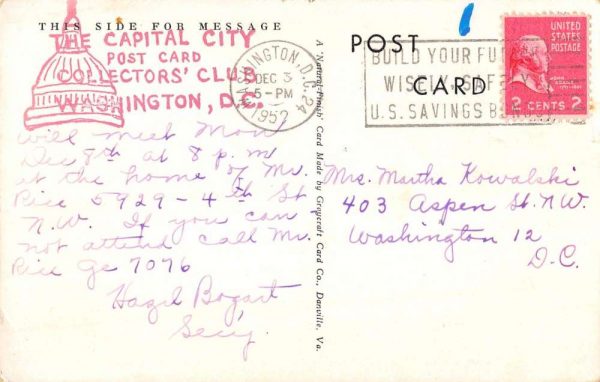 THIS SIDE FOR MESSAGE
THE CAPITAL CITY
POST CARD
COLLECTORS' CLUB
WASHINGTON, D.C.
WASHINGTON, D.C. 24
DEC 3
5-PM
1952
Will meet Mon
Dec 8th at 8 p.m
at the home of Mr.
Rice 5929-4th St
N.W. If you can
not attend call Mr.
Rice Ge 7076
Hazel Bogart
Sec'y.
A 'Natural-Finish' Card Made by Graycraft Card Co., Danville, Va.
POST
CARD
BUILD YOUR FUTURE
WISELY, SAFELY
U.S. SAVINGS BONDS
UNITED
STATES
POSTAGE
JOHN
ADAMS
2 CENTS 2
Mrs. Martha Kowalski
403 Aspen St. N.W.
Washington 12
D.C.